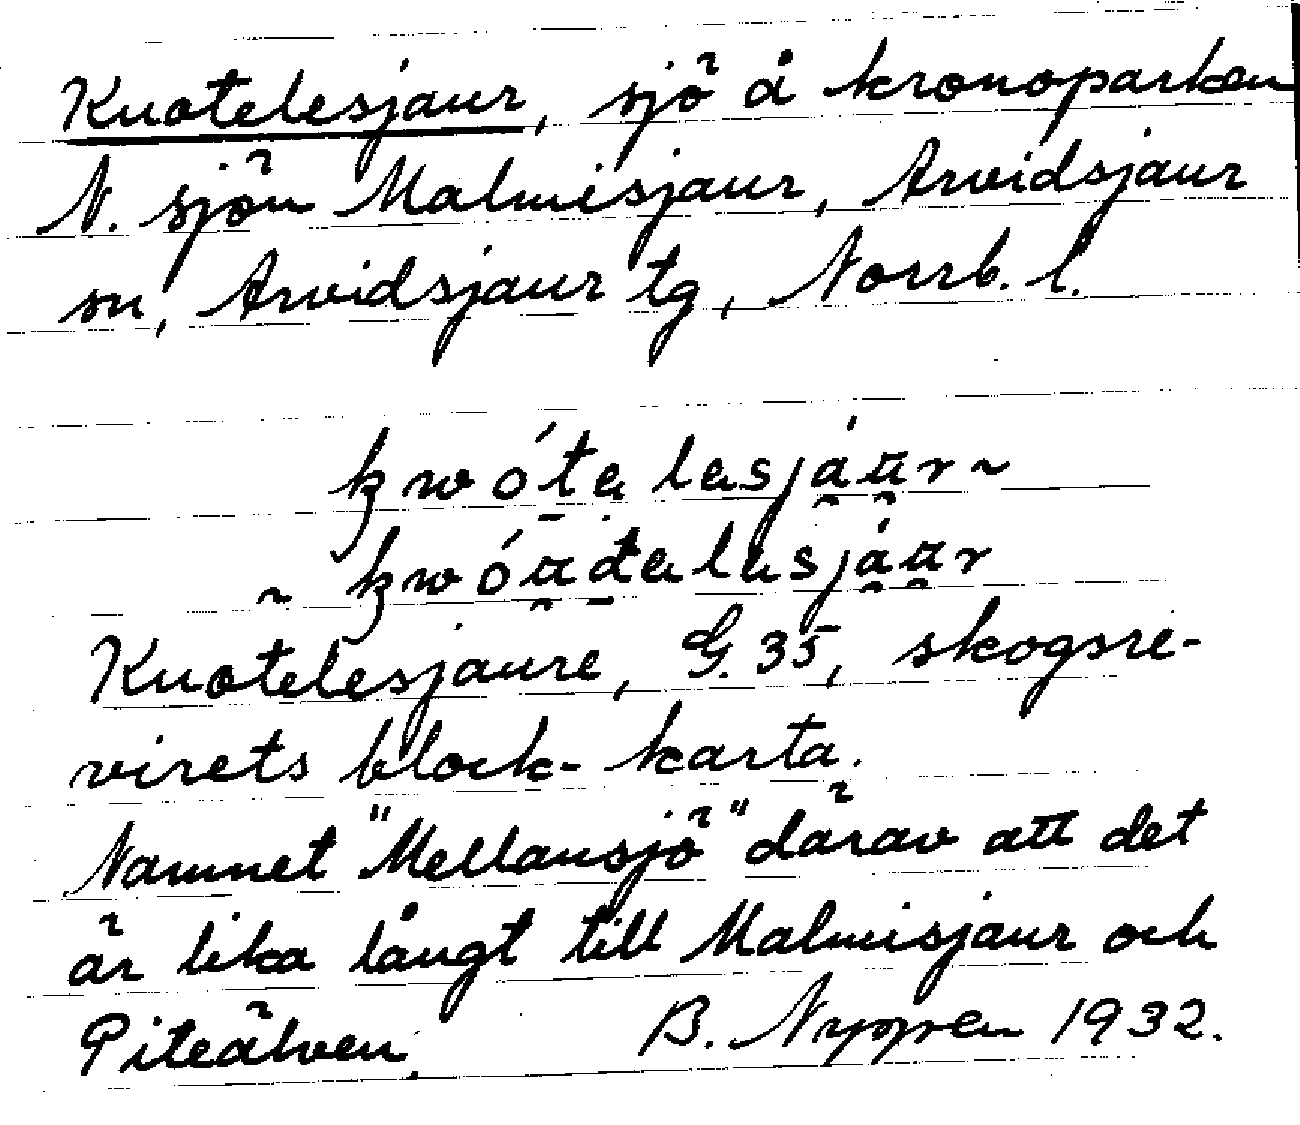 Kuotelesjaur, sjö å kronoparken
N. sjön Malmisjaur, Arvidsjaur
sn, Arvidsjaur tg, Norrb. l.
kwótelesjáur ~
~ kwóudelesjáur
Kuotelesjaure, G. 35, skogsre-
virets block-karta.
Namnet "Mellansjö" därav att det
är lika långt till Malmisjaur och
Piteälven. B. Nyppen 1932.